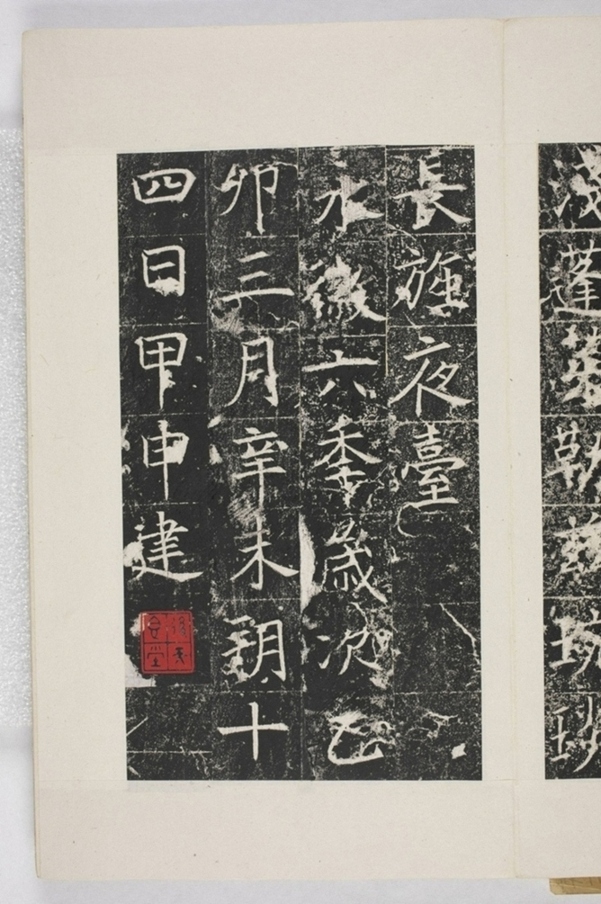 淺蓬萊勒茲琬琰
長旌夜臺
永徽六秊歲次乙
卯三月辛未朔十
四日甲申建